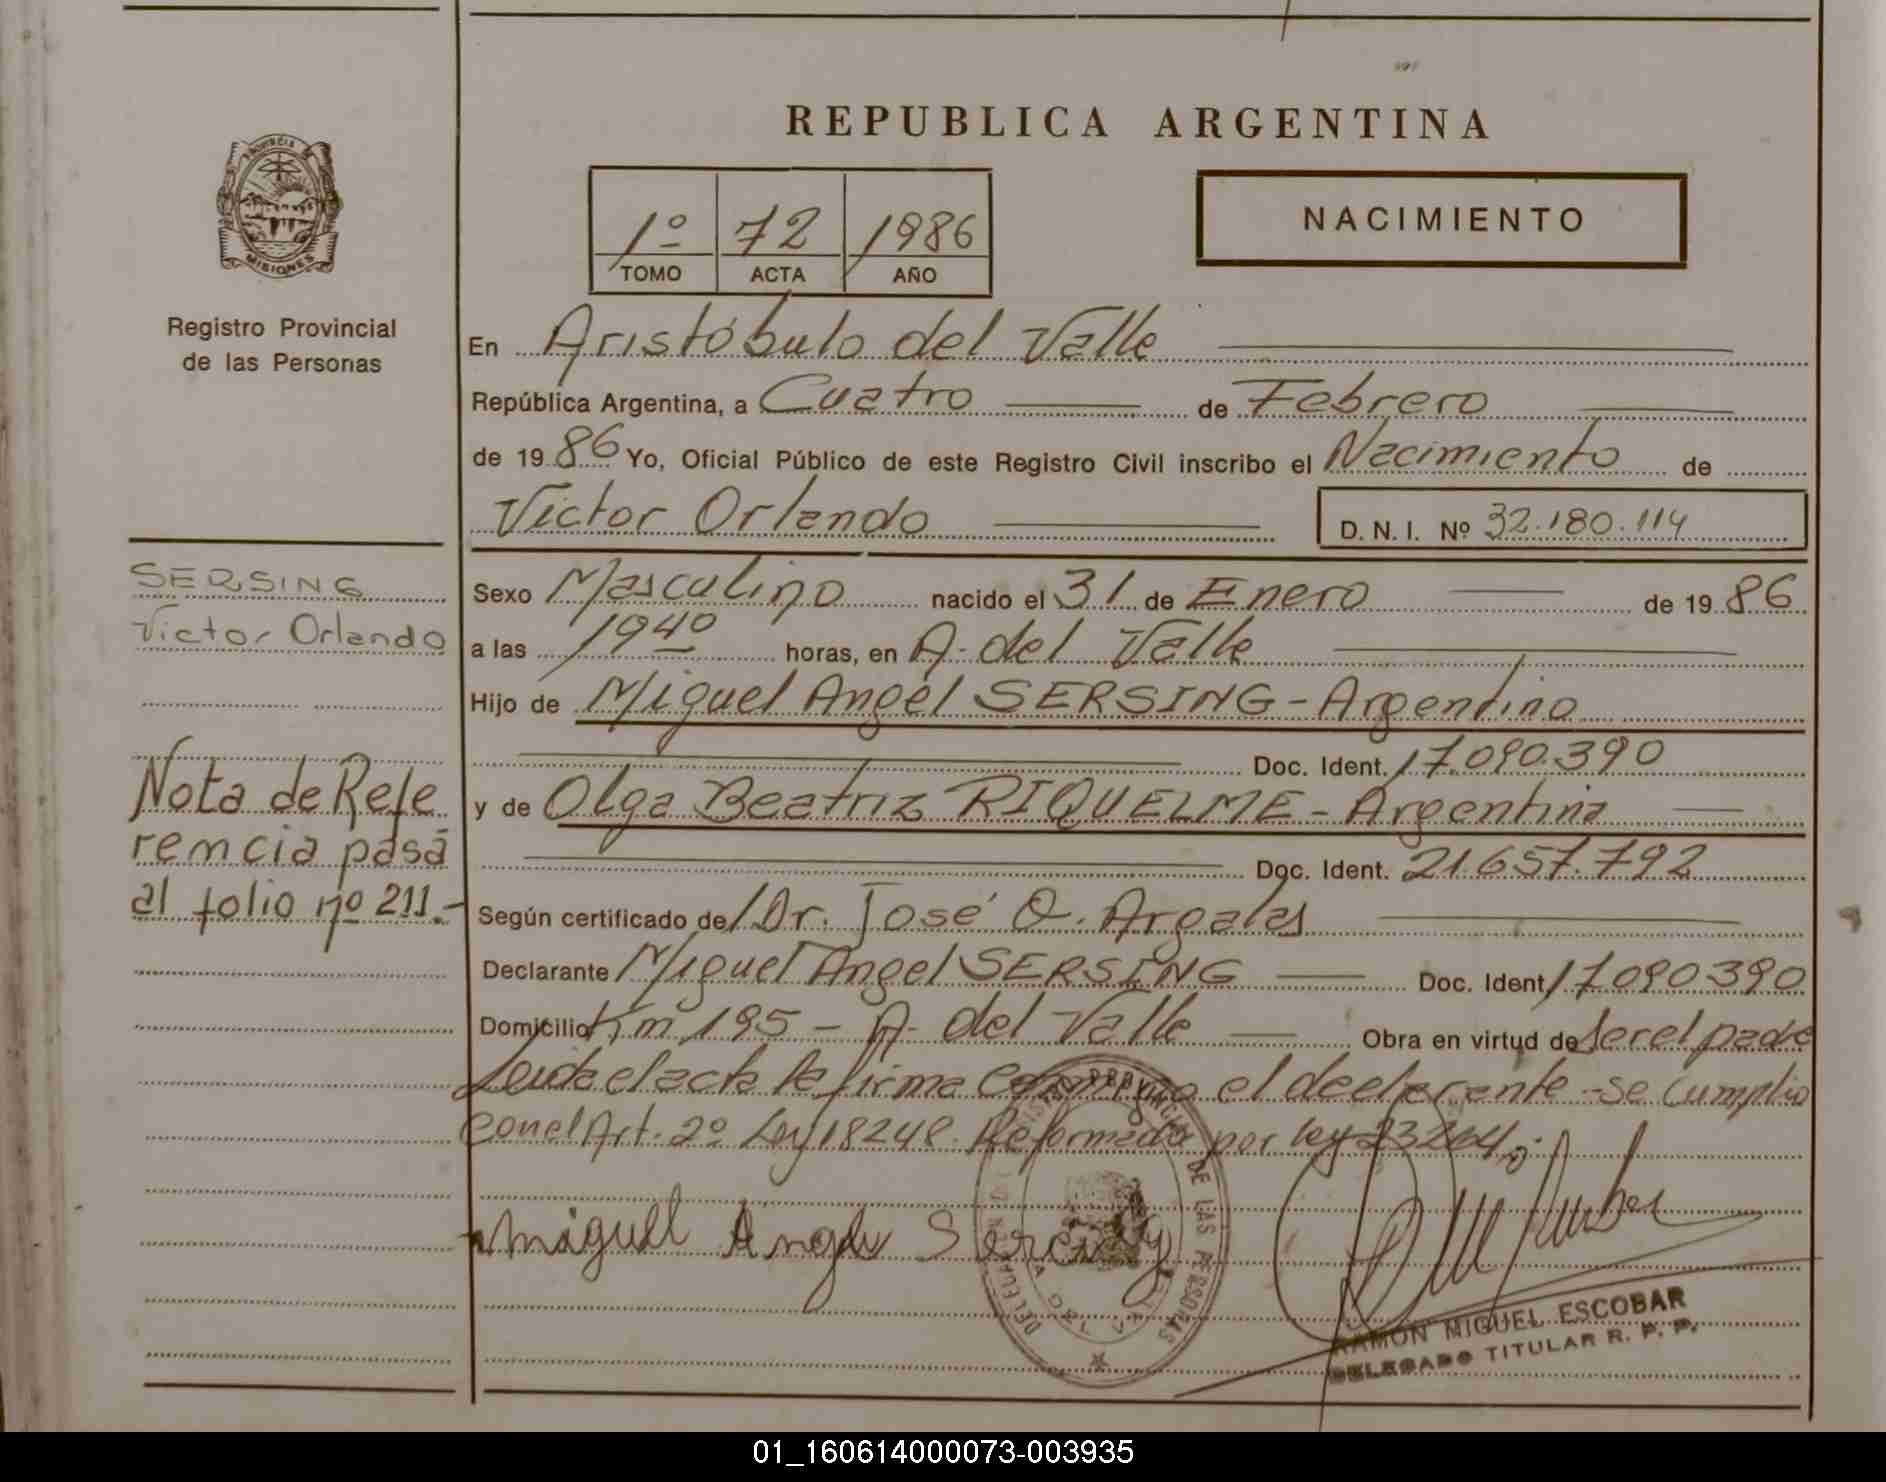 REPUBLICA ARGENTINA
PROVINCIA
MISIONES
Registro Provincial
de las Personas
1º 72 1986
TOMO ACTA AÑO
NACIMIENTO
En Aristóbulo del Valle
República Argentina, a Cuatro de Febrero
de 1986 Yo, Oficial Público de este Registro Civil inscribo el Nacimiento de
Victor Orlando D. N. I. Nº 32.180.114
SERSING
Victor Orlando
Nota de Refe
rencia pasa
al folio nº 211.-
Sexo Masculino nacido el 31 de Enero de 1986
a las 19 40 horas, en A. del Valle
Hijo de Miguel Angel SERSING - Argentino
Doc. Ident. 17.090.390
y de Olga Beatriz RIQUELME - Argentina
Doc. Ident. 21.657.792
Según certificado de Dr. José O. Argalas
Declarante Miguel Angel SERSING Doc. Ident 17090390
Domicilio Km 195 - A. del Valle Obra en virtud de ser el padre
Leida el acta la firma Conmigo el declarante - se Cumplio
con el Art. 2º Ley 18248. Reformada por ley 23264
Miguel Angel
DE LAS PERSONAS
RAMON MIGUEL ESCOBAR
DELEGADO TITULAR R. P. P.
01_160614000073-003935